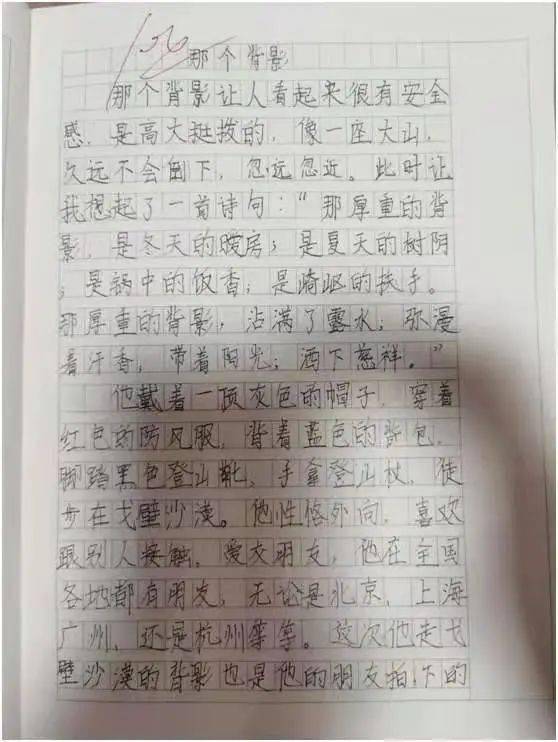 那个背影
那个背影让人看起来很有安全
感，是高大挺拨的，像一座大山，
久远不会倒下，忽远忽近。此时让
我想起了一首诗句：“那厚重的背
影，是冬天的暖房；是夏天的树阴
；是锅中的饭香；是崎岖的扶手。
那厚重的背影，沾满了露水；弥漫
着汗香；带着阳光；洒下慈祥。”
他戴着一顶灰色的帽子，穿着
红色的防风服，背着蓝色的背包，
脚踏黑色登山靴，手拿登山杖，徒
步在戈壁沙漠。他性格外向，喜欢
跟别人接触，爱交朋友，他在全国
各地都有朋友，无论是北京，上海
广州，还是杭州等等。这次他走戈
壁沙漠的背影也是他的朋友拍下的